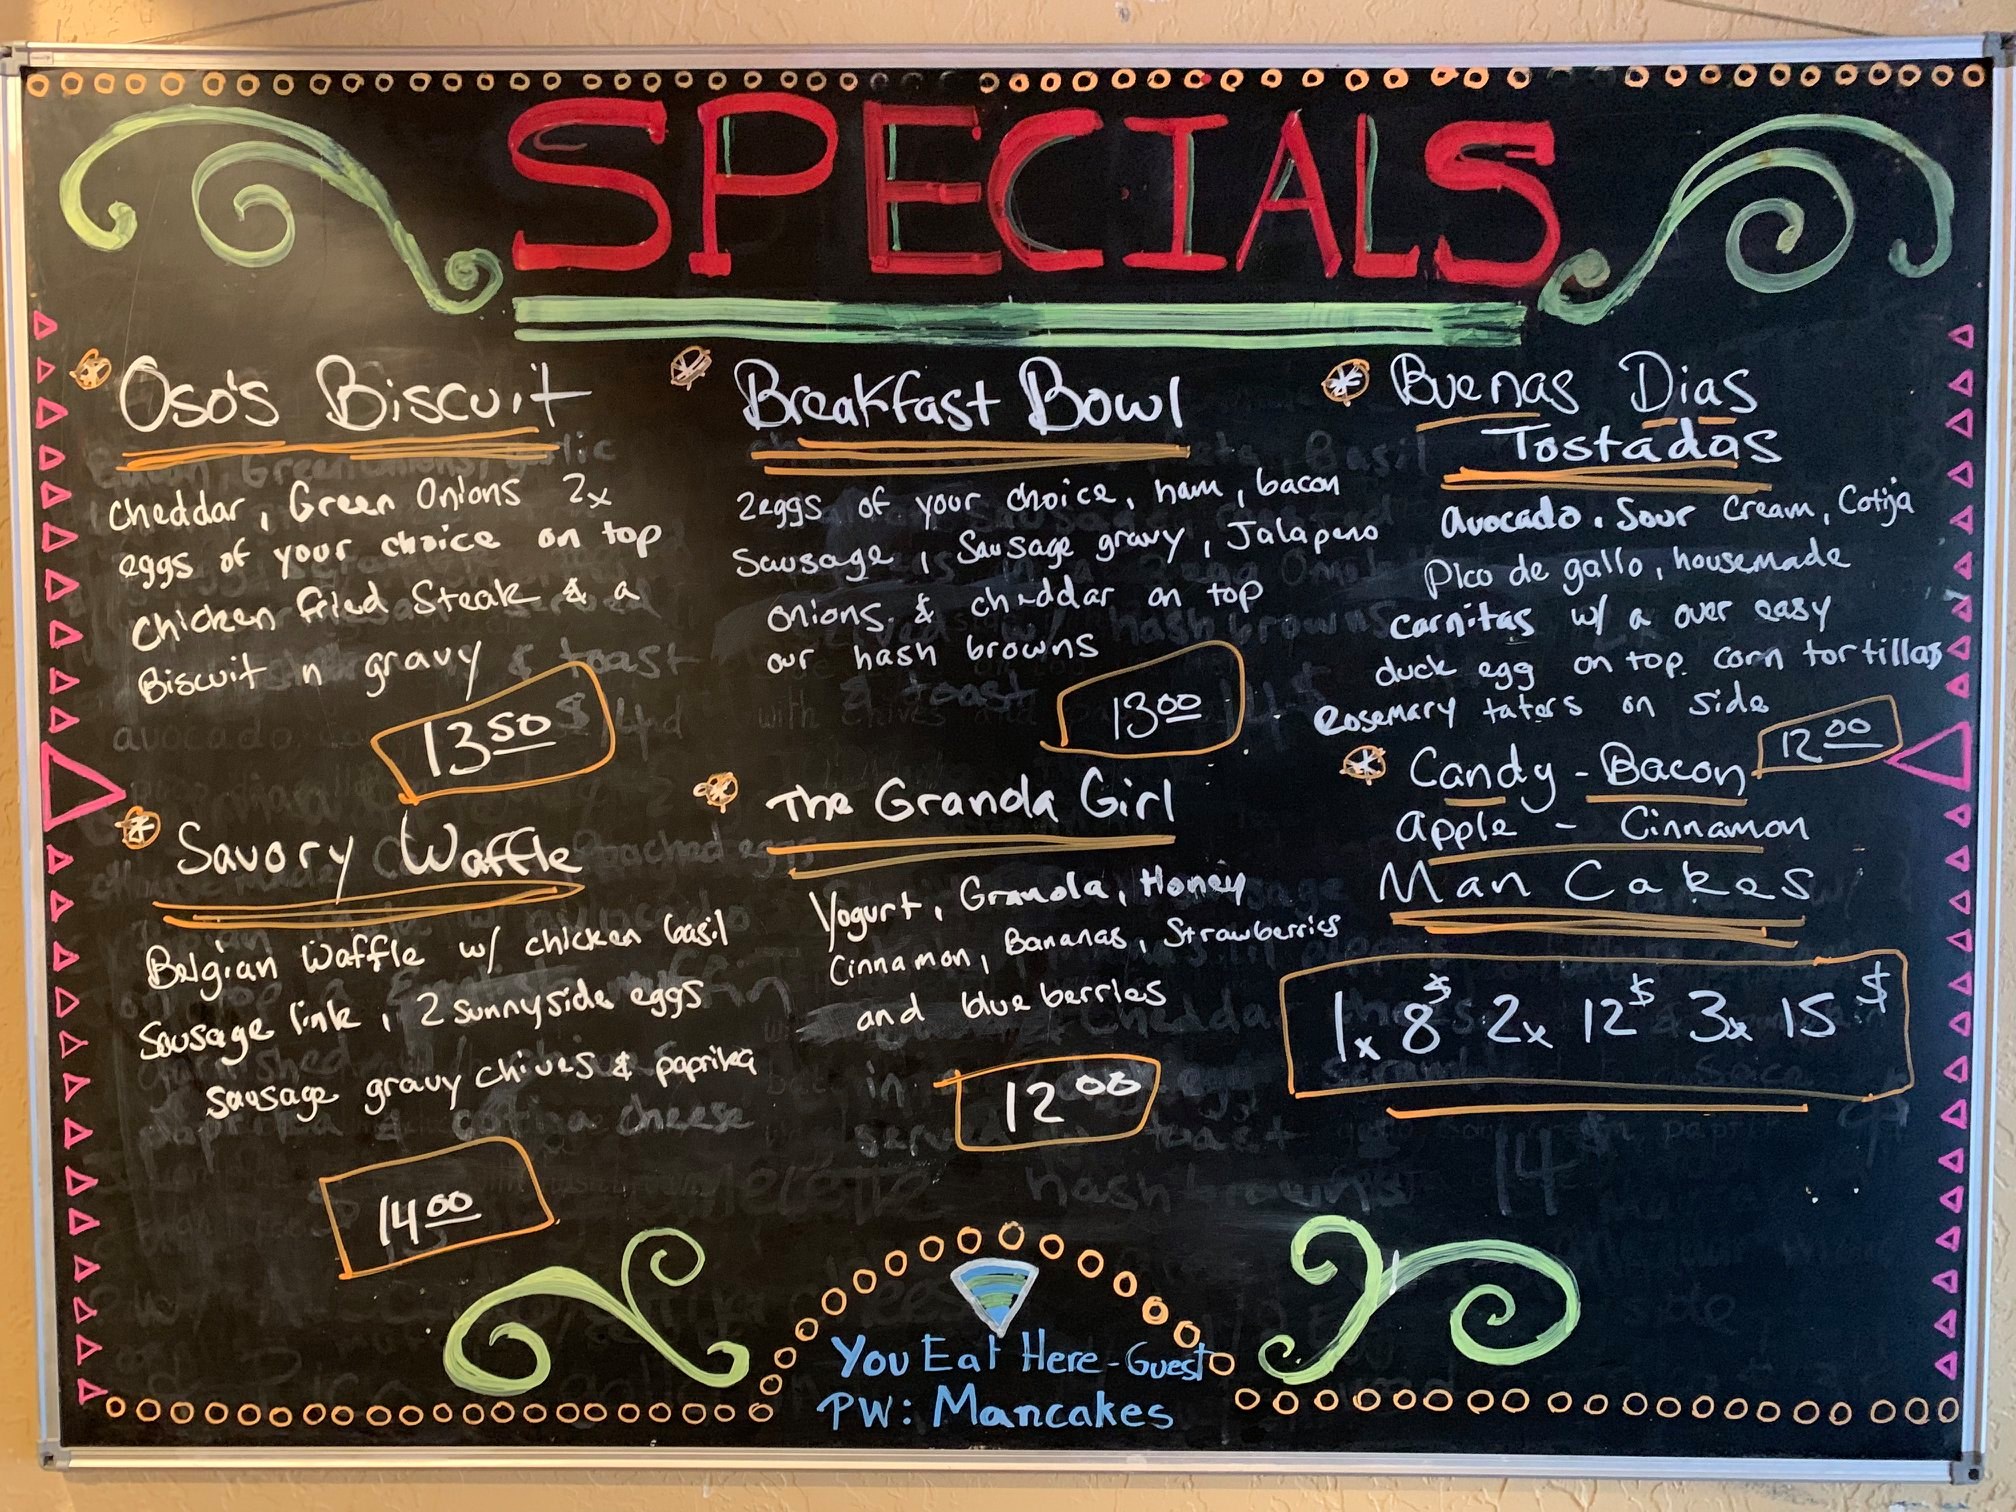 SPECIALS
Oso's Biscuit
Cheddar, Green Onions 2x
eggs of your choice on top
Chicken fried Steak & a
Biscuit n gravy
13 50
Savory Waffle
Belgian Waffle w/ chicken basil
Sausage link, 2 sunnyside eggs
sausage gravy chives & paprika
14 00
Breakfast Bowl
2eggs of your choice, ham, bacon
Sausage, Sausage gravy, Jalapeno
onions & cheddar on top
our hash browns
13 00
The Granola Girl
Yogurt, Granola, Honey
Cinnamon, Bananas, Strawberries
and blueberries
12 00
Buenas Dias
Tostadas
avocado, Sour Cream, Cotija
Pico de gallo, housemade
carnitas w/ a over easy
duck egg on top. corn tortillas
Rosemary taters on side
12 00
Candy - Bacon
Apple - Cinnamon
Man Cakes
1x 8$ 2x 12$ 3x 15$
You Eat Here-Guest
PW: Mancakes